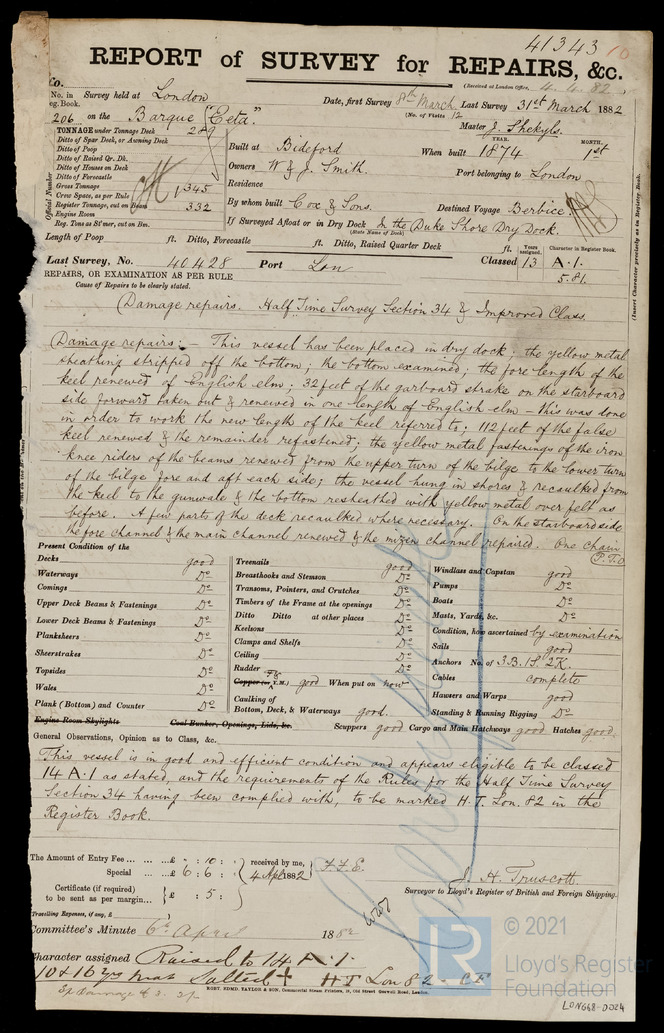 41343 10
REPORT of SURVEY for REPAIRS, &c.
(Received at London Office, 4.4.82
No. in Survey held at London Date, first Survey 8th March Last Survey 31st March 1882
Reg. Book. (No. of Visits 12
206 on the Barque "Zeta." Master J. Shekyls.
TONNAGE under Tonnage Deck 289
Ditto of Spar Deck, or Awning Deck
Ditto of Poop
Ditto of Raised Qr. Dk.
Ditto of Houses on Deck
Ditto of Forecastle
Gross Tonnage 345
Crew Space, as per Rule
Register Tonnage, cut on Beam 332
Engine Room
Reg. Tons as St'mer, cut on Bm.
Official Number
Built at Bideford When built YEAR. 1874 MONTH. 1st
Owners W & J. Smith. Port belonging to London
Residence
By whom built Cox & Sons. Destined Voyage Berbice.
If Surveyed Afloat or in Dry Dock In the Duke Shore Dry Dock.
(State Name of Dock)
Length of Poop ft. Ditto, Forecastle ft. Ditto, Raised Quarter Deck ft.
Years assigned. Character in Register Book.
Last Survey, No. 40428 Port Lon Classed 13 A.1.
5.81.
(Insert Character precisely as in Register Book.
REPAIRS, OR EXAMINATION AS PER RULE
Cause of Repairs to be clearly stated.
Damage repairs. Half Time Survey Section 34 & Improved Class.
Damage repairs:- This vessel has been placed in dry dock; the yellow metal
sheathing stripped off the bottom; the bottom examined; the fore length of the
keel renewed of English elm; 32 feet of the garboard strake on the starboard
side forward taken out & renewed in one length of English elm - this was done
in order to work the new length of the keel referred to; 112 feet of the false
keel renewed & the remainder refastened; the yellow metal fastenings of the iron
knee riders of the beams renewed from the upper turn of the bilge to the lower turn
of the bilge fore and aft each side; the vessel hung in shores & recaulked from
the keel to the gunwale & the bottom resheathed with yellow metal over felt as
before. A few parts of the deck recaulked where necessary. On the starboard side
the fore channel & the main channel renewed & the mizen channel repaired. One chain
P.T.O
Present Condition of the
Decks good
Waterways Do
Comings Do
Upper Deck Beams & Fastenings Do
Lower Deck Beams & Fastenings Do
Planksheers Do
Sheerstrakes Do
Topsides Do
Wales Do
Plank (Bottom) and Counter Do
Engine Room Skylights Coal Bunker, Openings, Lids, &c.
Treenails good
Breasthooks and Stemson Do
Transoms, Pointers, and Crutches Do
Timbers of the Frame at the openings Do
Ditto Ditto at other places Do
Keelsons Do
Clamps and Shelfs Do
Ceiling Do
Rudder Do
Copper (or Y.M.) good When put on now
Caulking of
Bottom, Deck, & Waterways good.
Windlass and Capstan good
Pumps Do
Boats Do
Masts, Yards, &c. Do
Condition, how ascertained by examination
Sails good
Anchors No. of 3B. 1S. 2K.
Cables complete
Hawsers and Warps good
Standing & Running Rigging Do
Scuppers good Cargo and Main Hatchways good Hatches good
General Observations, Opinion as to Class, &c.
This vessel is in good and efficient condition and appears eligible to be classed
14 A.1 as stated, and the requirements of the Rules for the Half Time Survey
Section 34 having been complied with, to be marked H.T. Lon. 82 in the
Register Book.
The Amount of Entry Fee £ " : 10 : received by me,
Special £ 6 : 6 : 4 Apl 1882
Certificate (if required) £ : 5 :
to be sent as per margin
Travelling Expenses, if any, £
J. H. Truscott.
Surveyor to Lloyd's Register of British and Foreign Shipping.
Committee's Minute 6th April 1882
Character assigned Raised to 14 A.1.
Salted + H T Lon 82
ROBT. EDMD. TAYLOR & SON, Commercial Steam Printers, 19, Old Street Goswell Road, London.
LR
© 2021
Lloyd's Register
Foundation
LON668-0024